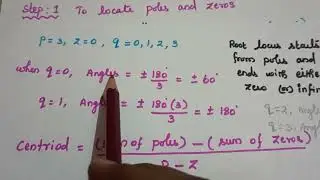 Step: 1 To locate poles and zeros
P = 3, Z = 0, q = 0, 1, 2, 3
Root locus starts
from poles and
ends with either
zero (or) infin
when q=0, Angles = ± 180°/3 = ± 60°
q = 1, = ± 180°(3)/3 = ± 180°
q = 2,
q = 3,
Centriod = of poles) − (sum of zeros)